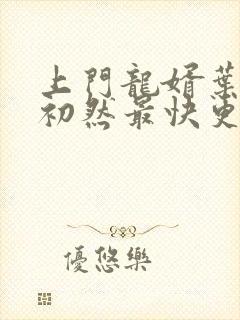 上門龍婿葉
初然最快更
優悠樂